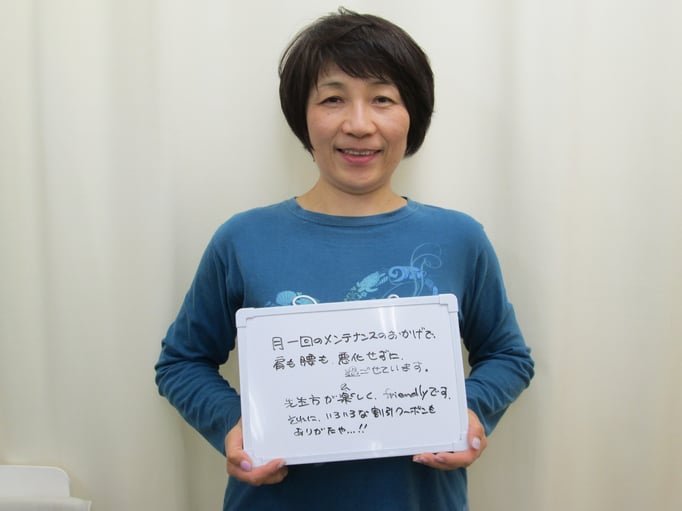 月一回のメンテナンスのおかげで、
肩も腰も、悪化せずに、
過ごせています。
先生方が楽しく、friendlyです、
それに、いろいろな割引クーポンも
ありがたや…!!